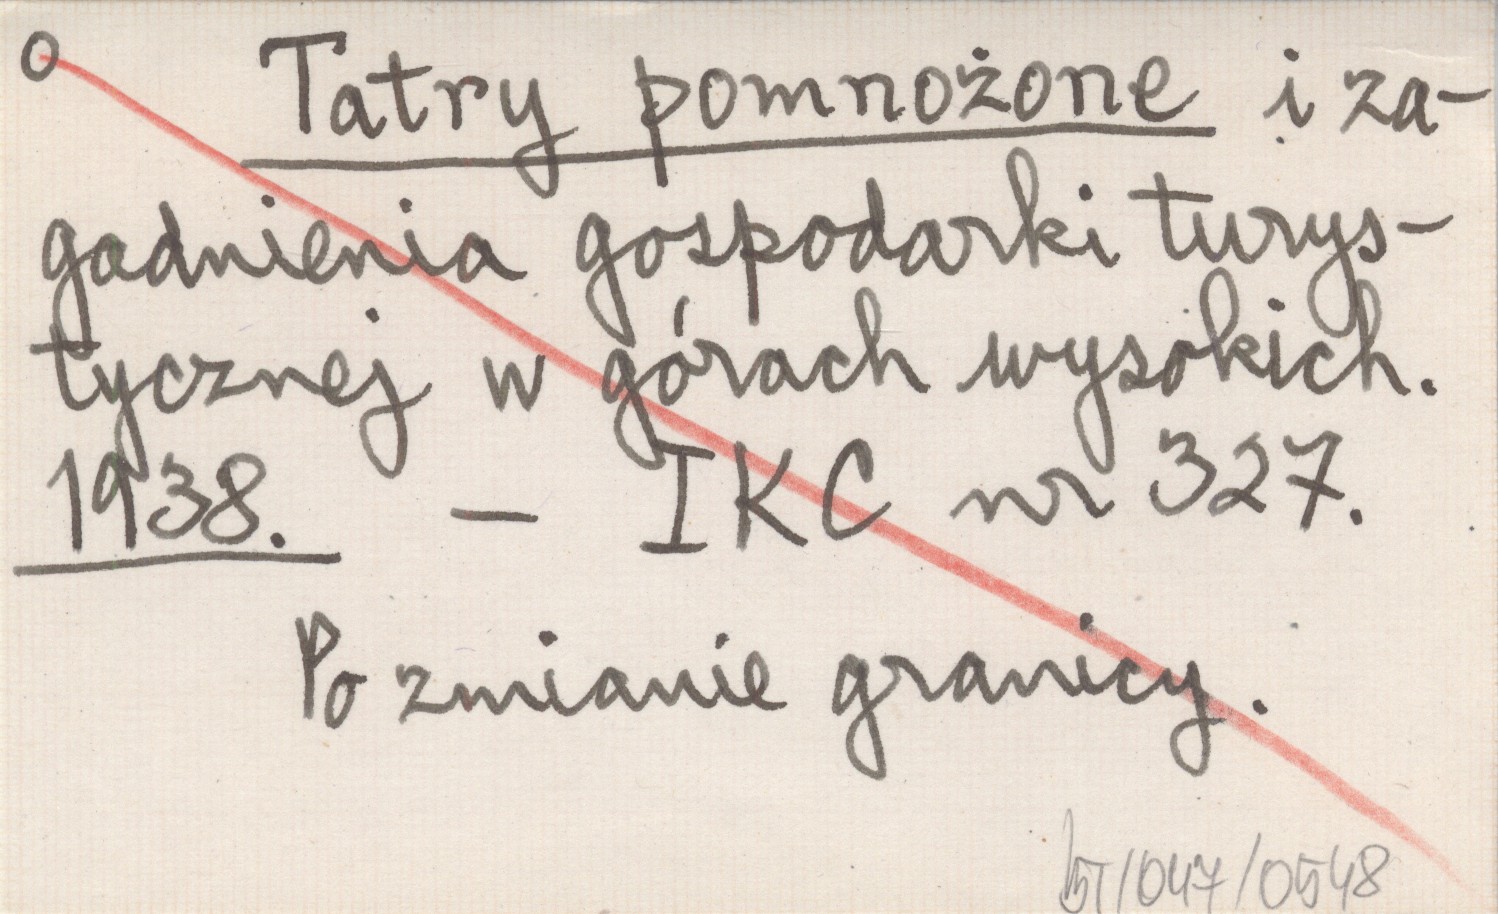 O Tatry pomnożone i za-
gadnienia gospodarki turys-
tycznej w górach wysokich.
1938. — IKC nr 327.
Po zmianie granicy.
/047/0548